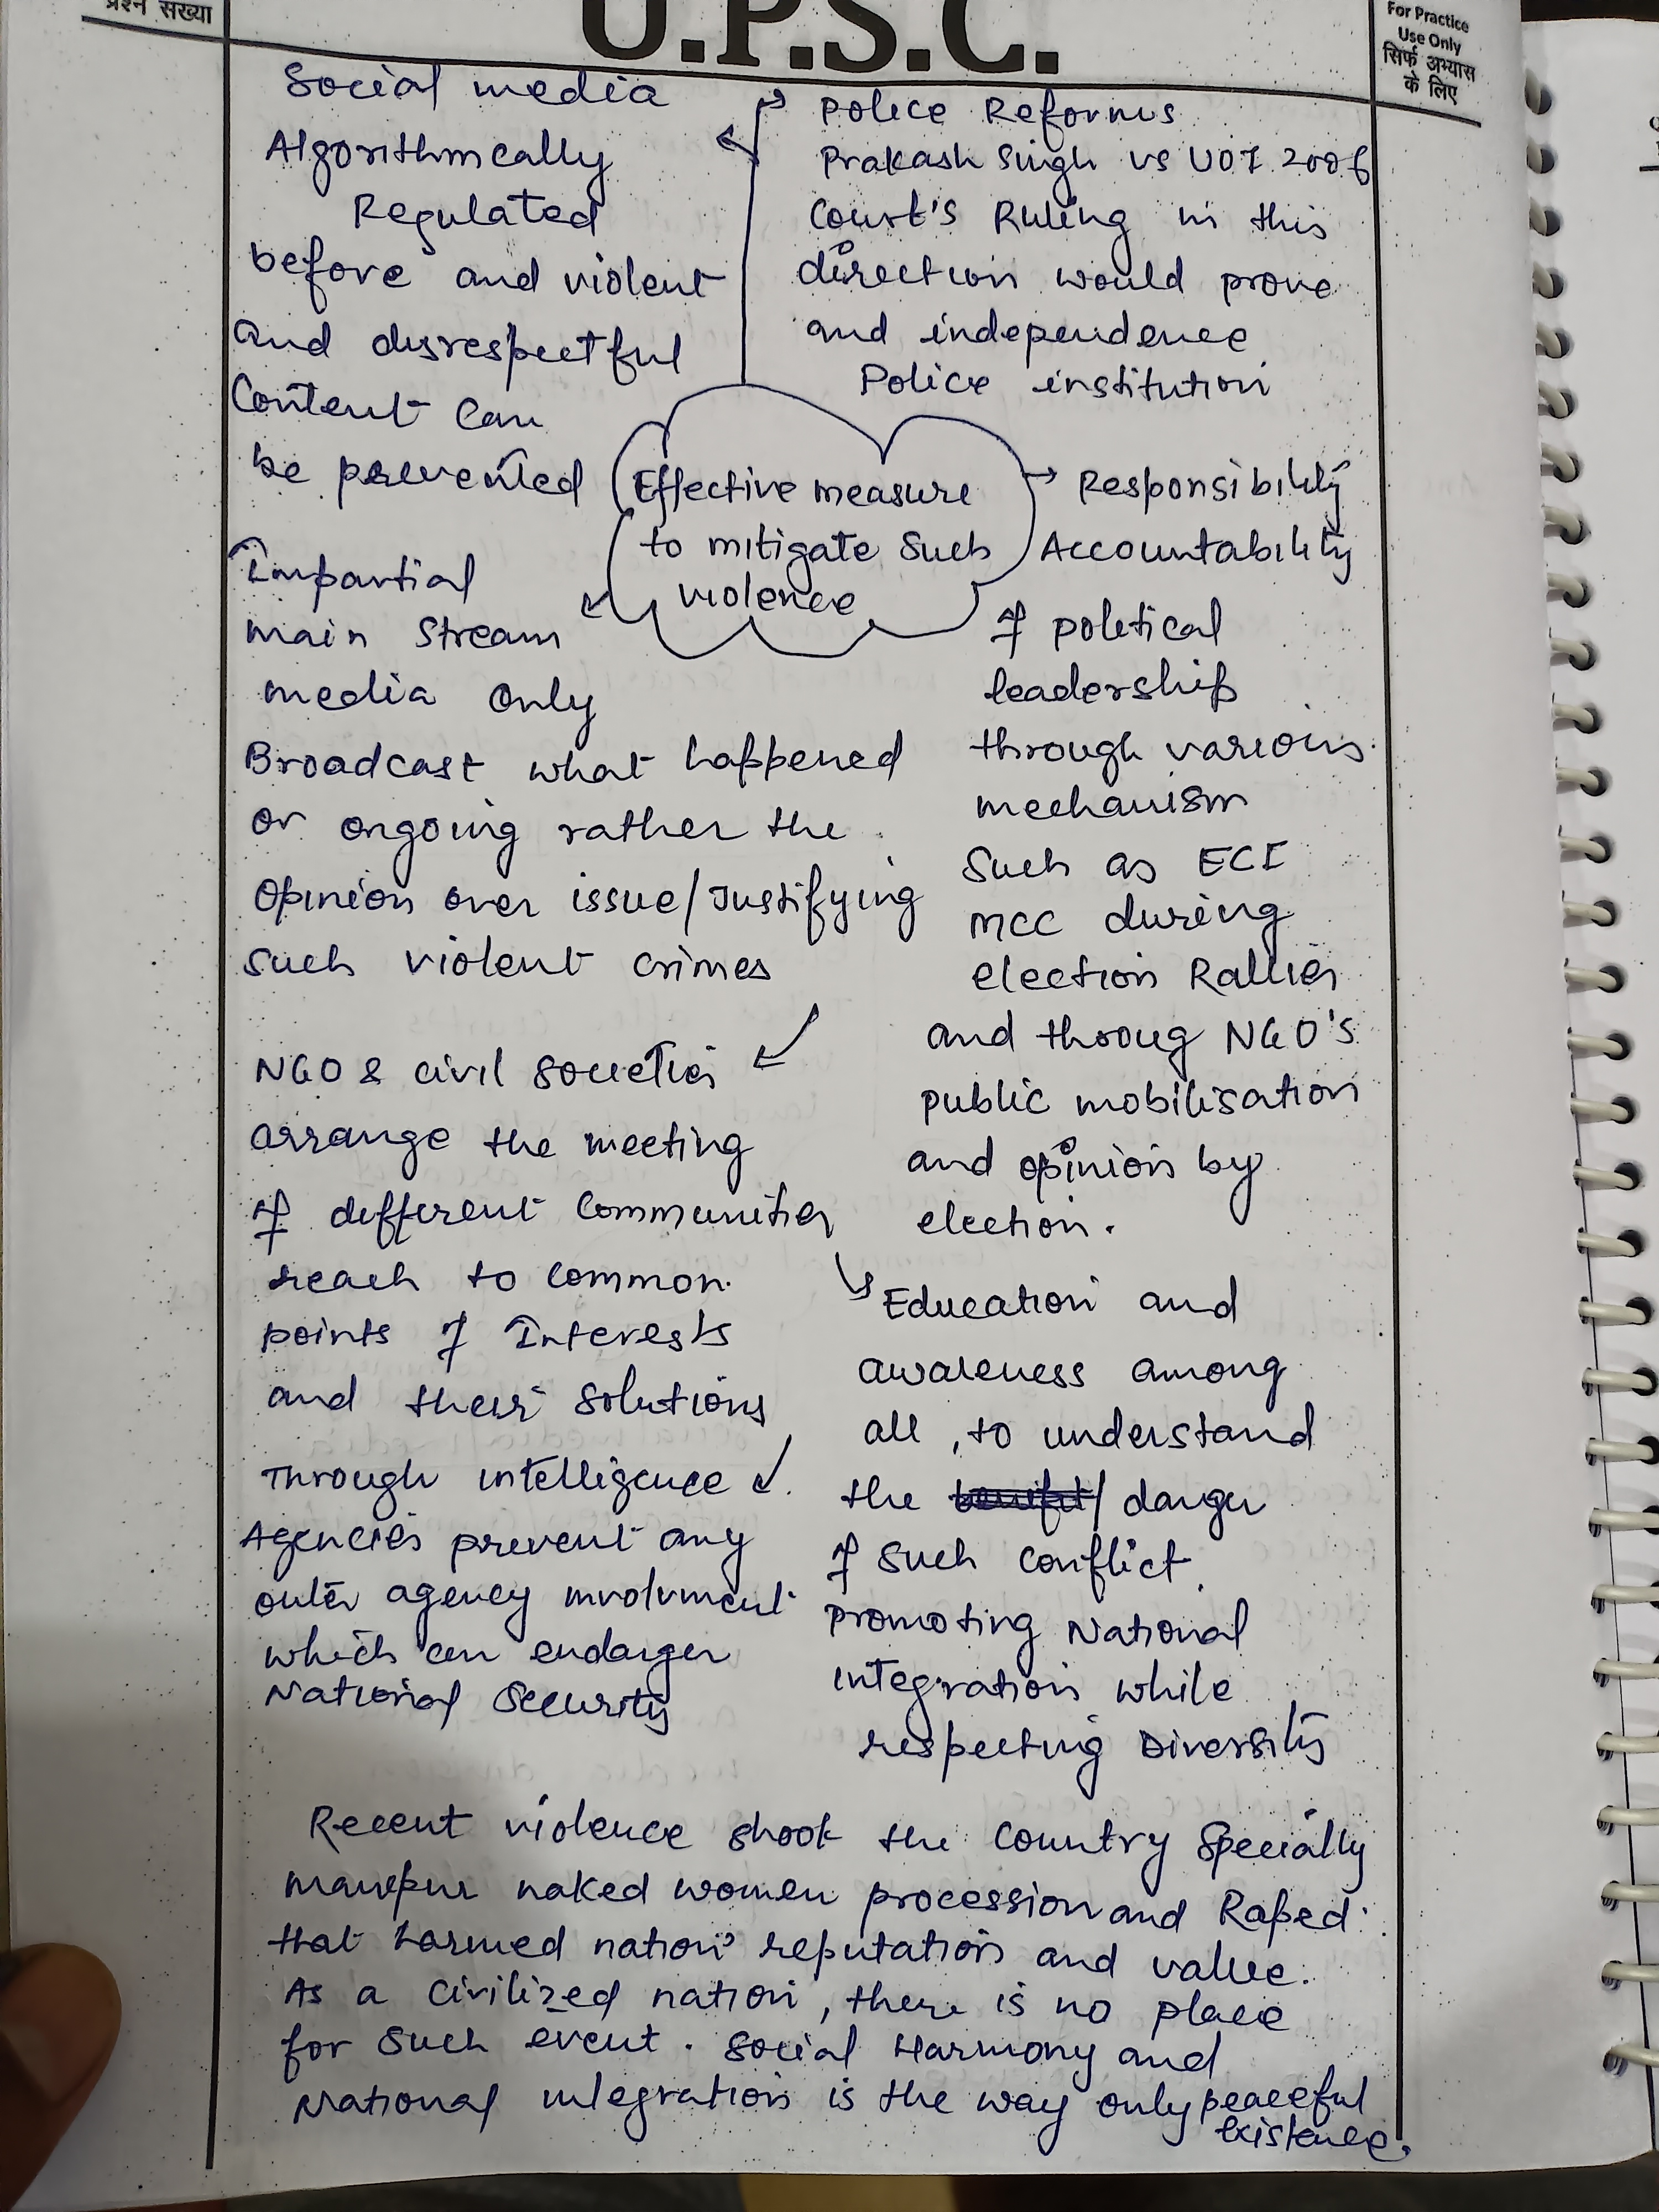 प्रश्न संख्या
U.P.S.C.
For Practice
Use Only
सिर्फ अभ्यास
के लिए
Social media
Algorithmcally
Regulated
before and violent
and disrespectful
Content can
be prevented
Police Reforms
Prakash Singh vs UOI 2006
Court's Ruling in this
direction would prove
and independence
Police institution
Effective measure
to mitigate such
violence
Responsibility
Accountability
of political
leadership
through various
mechanism
such as ECI
MCC during
election Rallies
and throug NGO's
public mobilisation
and opinion by
election.
Impartial
main stream
media only
Broadcast what happened
or ongoing rather the
opinion over issue/Justifying
such violent crimes
NGO & civil societies
arrange the meeting
of different communities
reach to common
points of Interests
and their solutions
Through intelligence
Agencies prevent any
outer agency involvment
which can endanger
National Security
Education and
awareness among
all, to understand
the / danger
of such conflict
promoting National
integration while
respecting Diversity
Recent violence shook the country specially
manipur naked women procession and Raped
that harmed nation's reputation and value.
As a civilized nation, there is no place
for such event. Social Harmony and
National integration is the way only peaceful
existence.